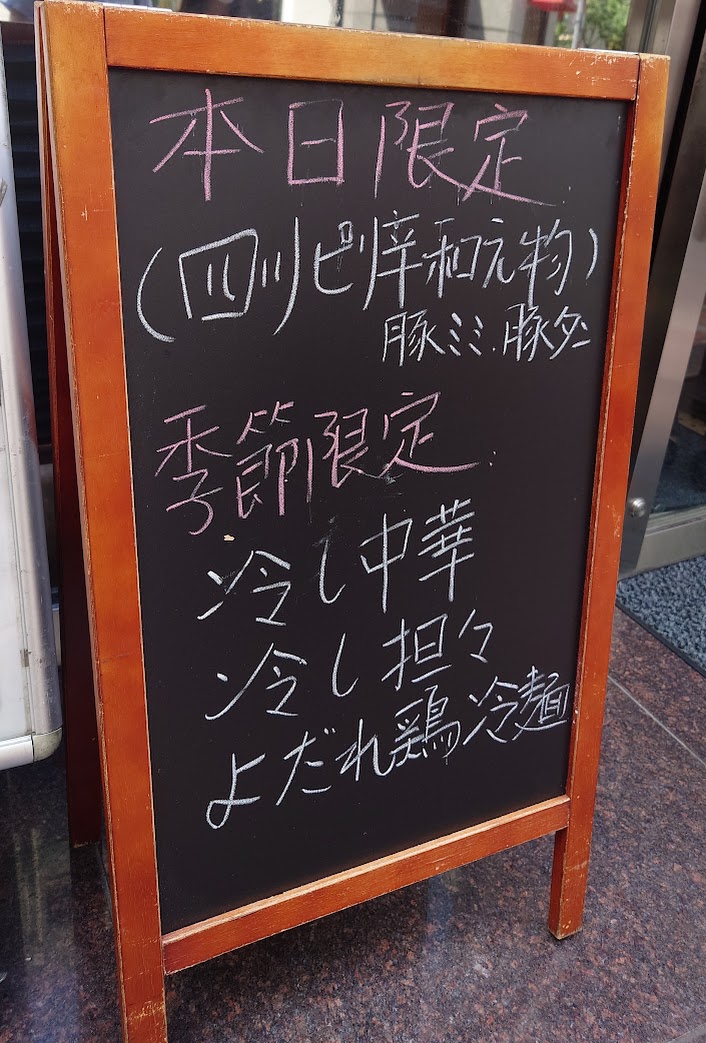 本日限定
(四川ピリ辛和え物)
豚ミミ.豚タン
季節限定
冷し中華
冷し担々
よだれ鶏冷麺